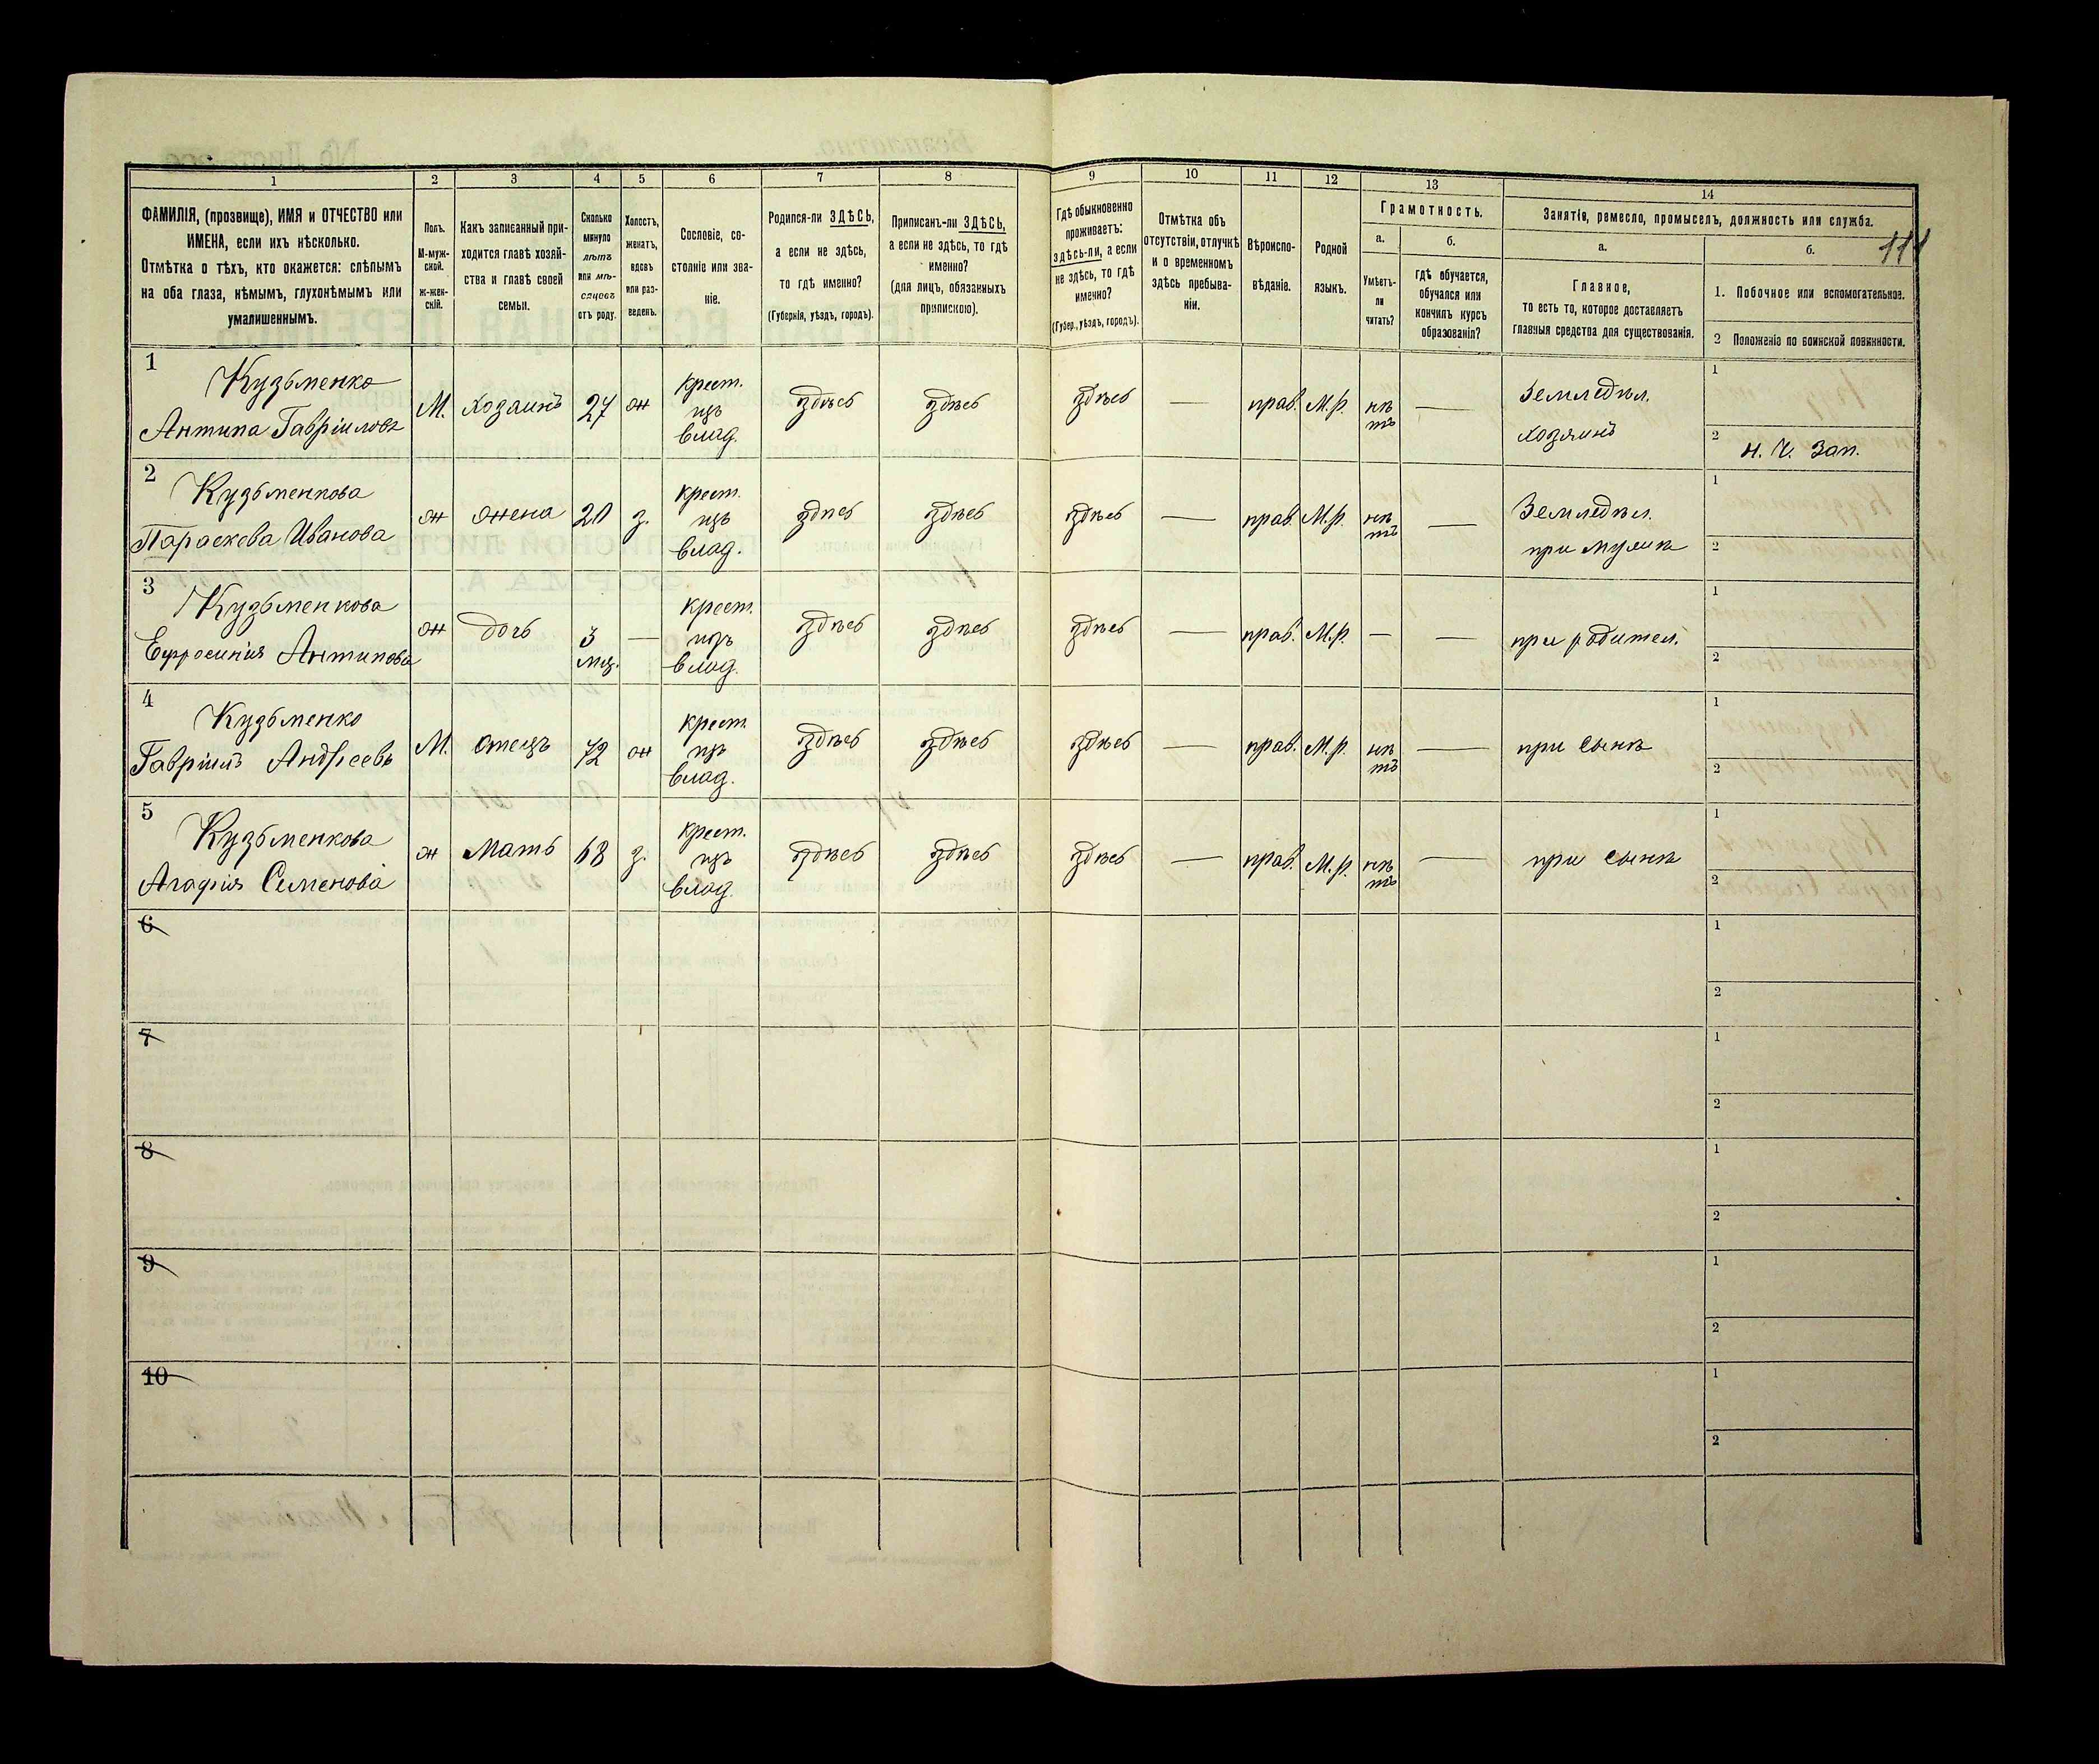 111
1 2 3 4 5 6 7 8 9 10 11 12 13 14
ФАМИЛІЯ, (прозвище), ИМЯ и ОТЧЕСТВО или
ИМЕНА, если ихъ нѣсколько.
Отмѣтка о тѣхъ, кто окажется: слѣпымъ
на оба глаза, нѣмымъ, глухонѣмымъ или
умалишеннымъ.
Полъ.
М-муж-
ской.
ж-жен-
скій.
Какъ записанный при-
ходится главѣ хозяй-
ства и главѣ своей
семьи.
Сколько
минуло
лѣтъ
или мѣ-
сяцевъ
отъ роду.
Холостъ,
женатъ,
вдовъ
или раз-
веденъ.
Сословіе, со-
стояніе или зва-
ніе.
Родился-ли ЗДѢСЬ,
а если не здѣсь,
то гдѣ именно?
(Губернія, уѣздъ, городъ).
Приписанъ-ли ЗДѢСЬ,
а если не здѣсь, то гдѣ
именно?
(для лицъ, обязанныхъ
припискою).
Гдѣ обыкновенно
проживаетъ:
здѣсь-ли, а если
не здѣсь, то гдѣ
именно?
(Губер., уѣздъ, городъ).
Отмѣтка объ
отсутствіи, отлучкѣ
и о временномъ
здѣсь пребыва-
ніи.
Вѣроиспо-
вѣданіе.
Родной
языкъ.
Грамотность.
а.
Умѣетъ-
ли
читать?
б.
гдѣ обучается,
обучался или
кончилъ курсъ
образованія?
Занятіе, ремесло, промыселъ, должность или служба.
а.
Главное,
то есть то, которое доставляетъ
главныя средства для существованія.
б.
1. Побочное или вспомогательное.
2 Положеніе по воинской повинности.
1
Кузьменко
Антипа Гавріиловъ
М. хозаинъ 27 ж
крест.
изъ
влад.
здѣсь здѣсь здѣсь — прав. М.р.
нѣ
тъ
—
Земледѣл.
хозяинъ
1
2 н. ч. зап.
2
Кузьменкова
Параскева Иванова
ж жена 20 з.
крест.
изъ
влад.
здѣсь здѣсь здѣсь — прав. М.р.
нѣ
тъ
—
Земледѣл.
при мужѣ
1
2
3
Кузьменкова
Ефросинія Антипова
ж дочь
3
мѣс.
—
крест.
изъ
влад.
здѣсь здѣсь здѣсь — прав. М.р. — — при родител.
1
2
4
Кузьменко
Гавріилъ Андреевъ
М. отецъ 72 ж
крест.
изъ
влад.
здѣсь здѣсь здѣсь — прав. М.р.
нѣ
тъ
— при сынѣ
1
2
5
Кузьменкова
Агафія Семенова
ж мать 68 з.
крест.
изъ
влад.
здѣсь здѣсь здѣсь — прав. М.р.
нѣ
тъ
— при сынѣ
1
2
6
1
2
7
1
2
8
1
2
9
1
2
10
1
2